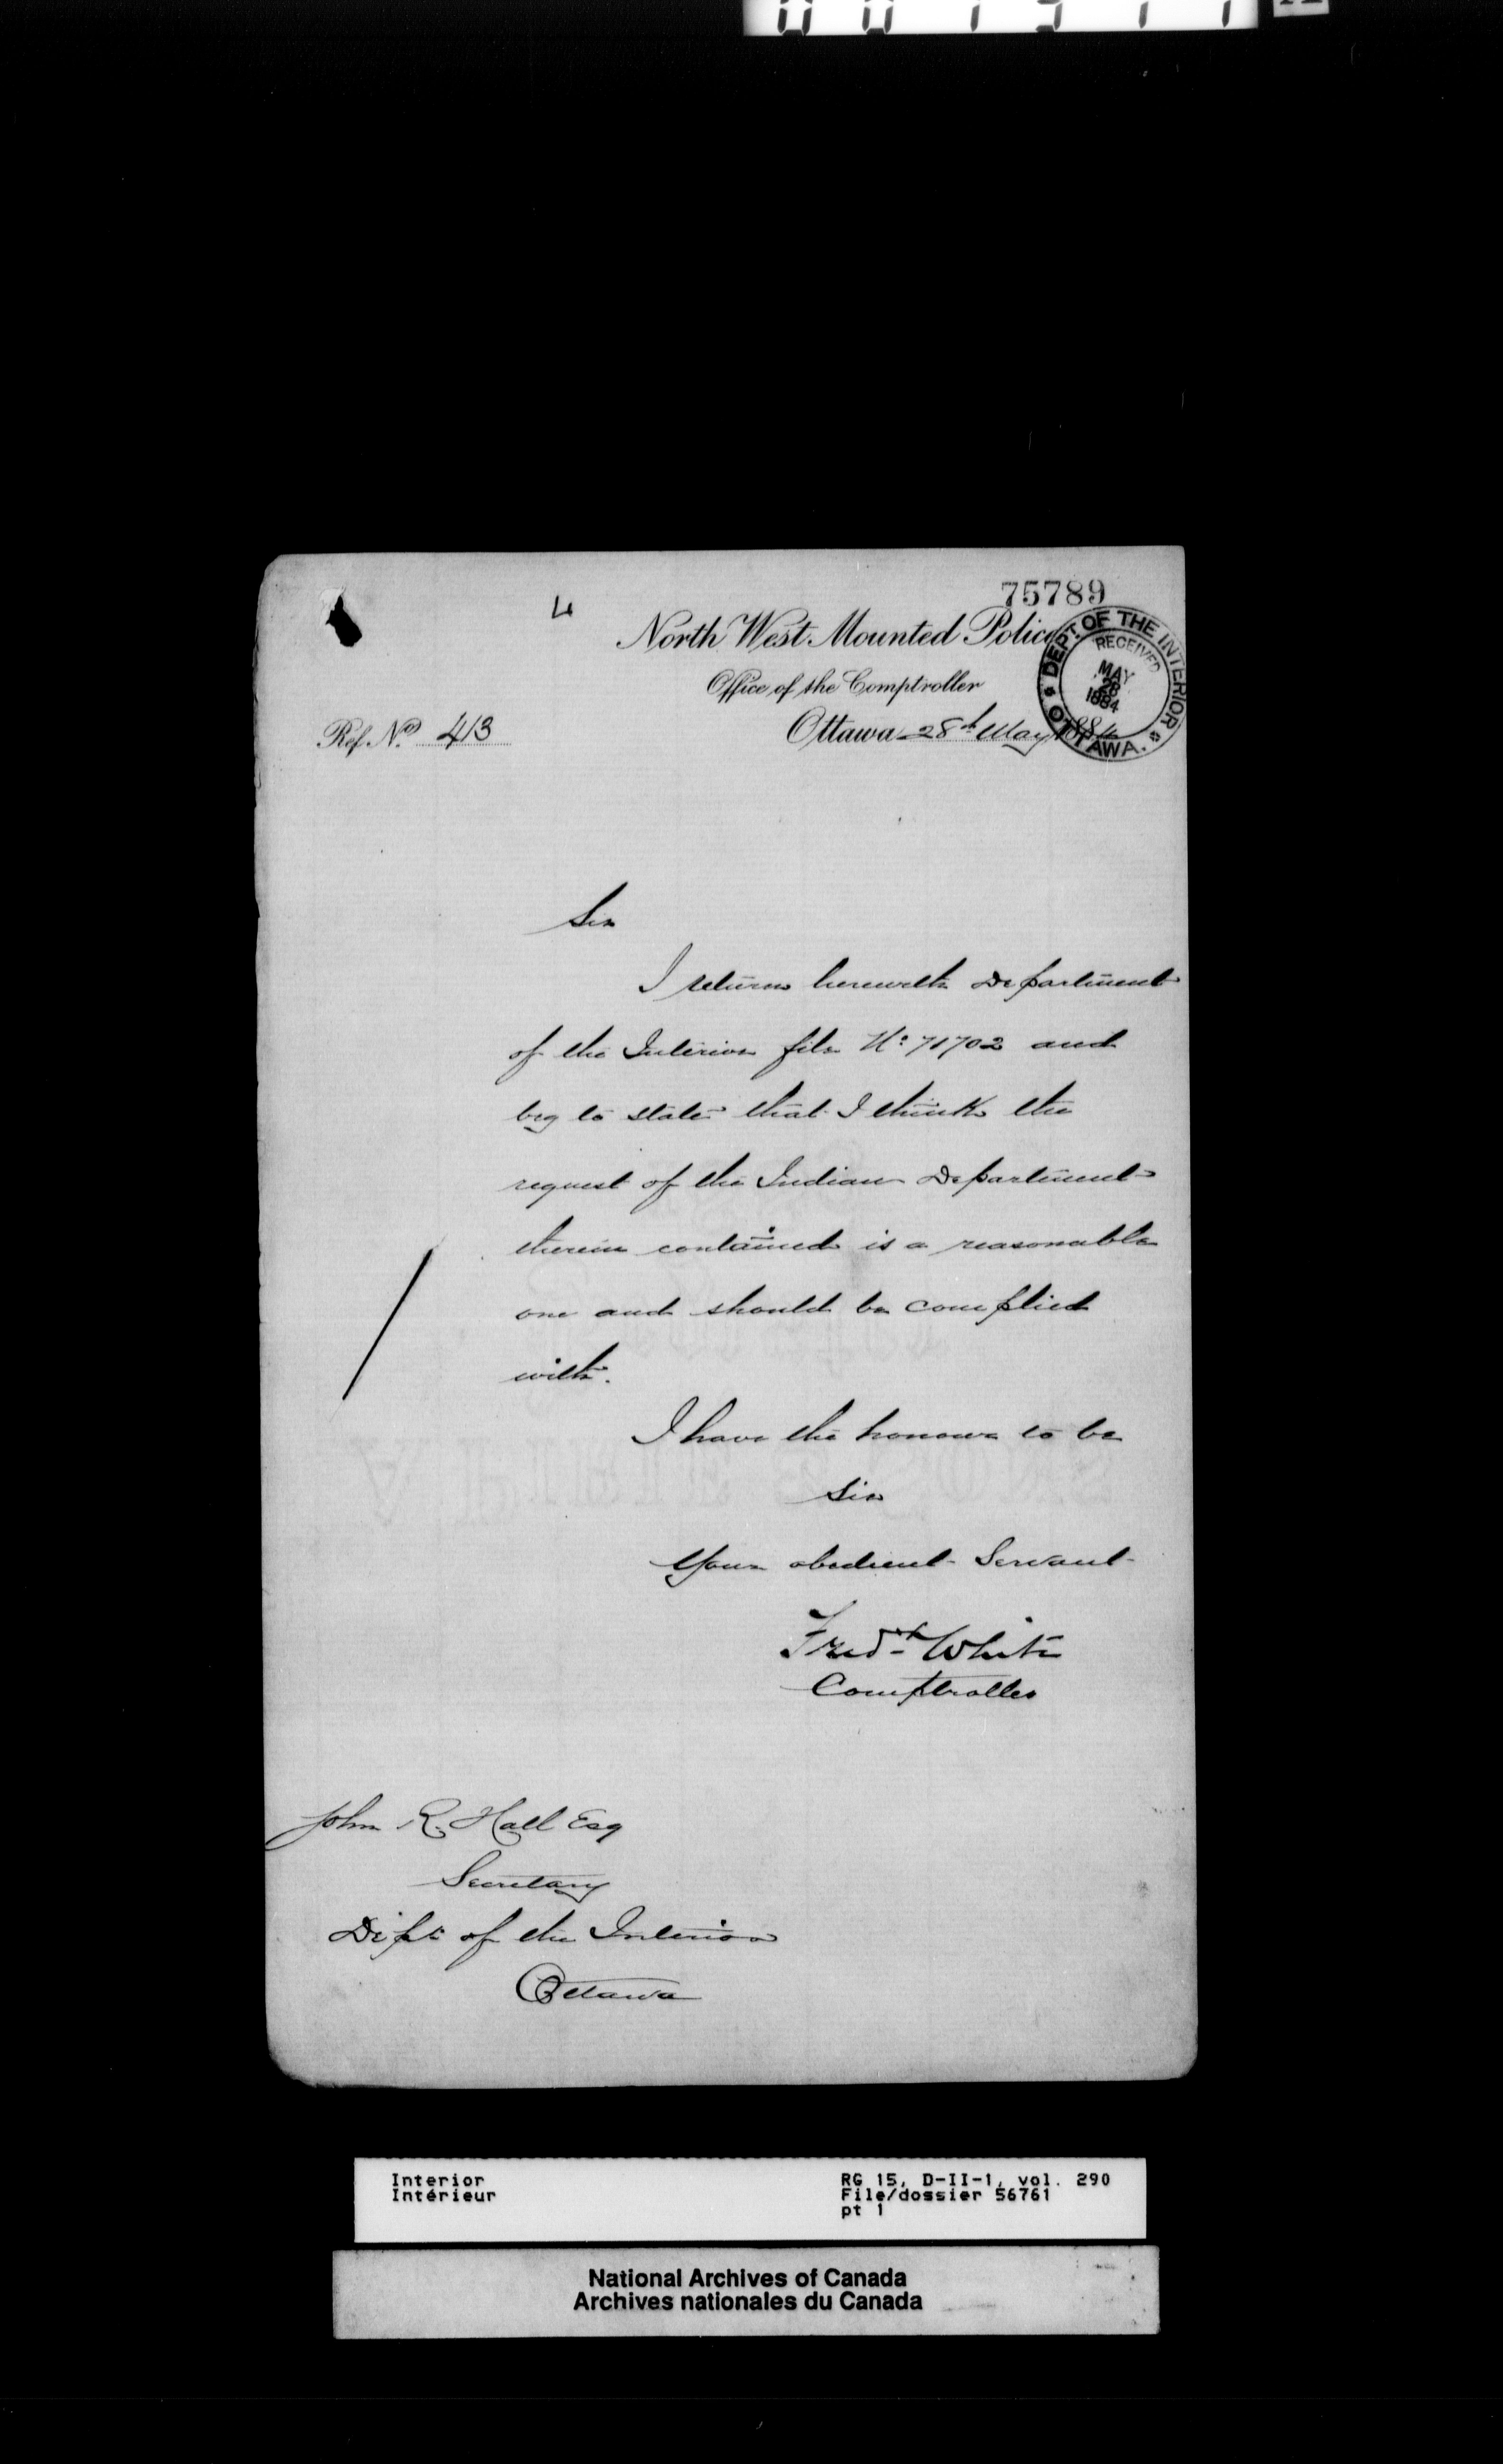 75789
4
North West Mounted Police
Office of the Comptroller
Ref. No. 413
Ottawa 28th May 1884
DEPT. OF THE INTERIOR
RECEIVED
MAY
28
1884
OTTAWA.
Sir
I return herewith Department
of the Interior file No. 71702 and
beg to state that I think the
request of the Indian Department
therein contained is a reasonable
one and should be complied
with.
I have the honour to be
Sir
Your obedient Servant
Fredk White
Comptroller
John R. Hall Esq
Secretary
Dept of the Interior
Ottawa
Interior
Intérieur
RG 15, D-II-1, vol. 290
File/dossier 56761
pt 1
National Archives of Canada
Archives nationales du Canada